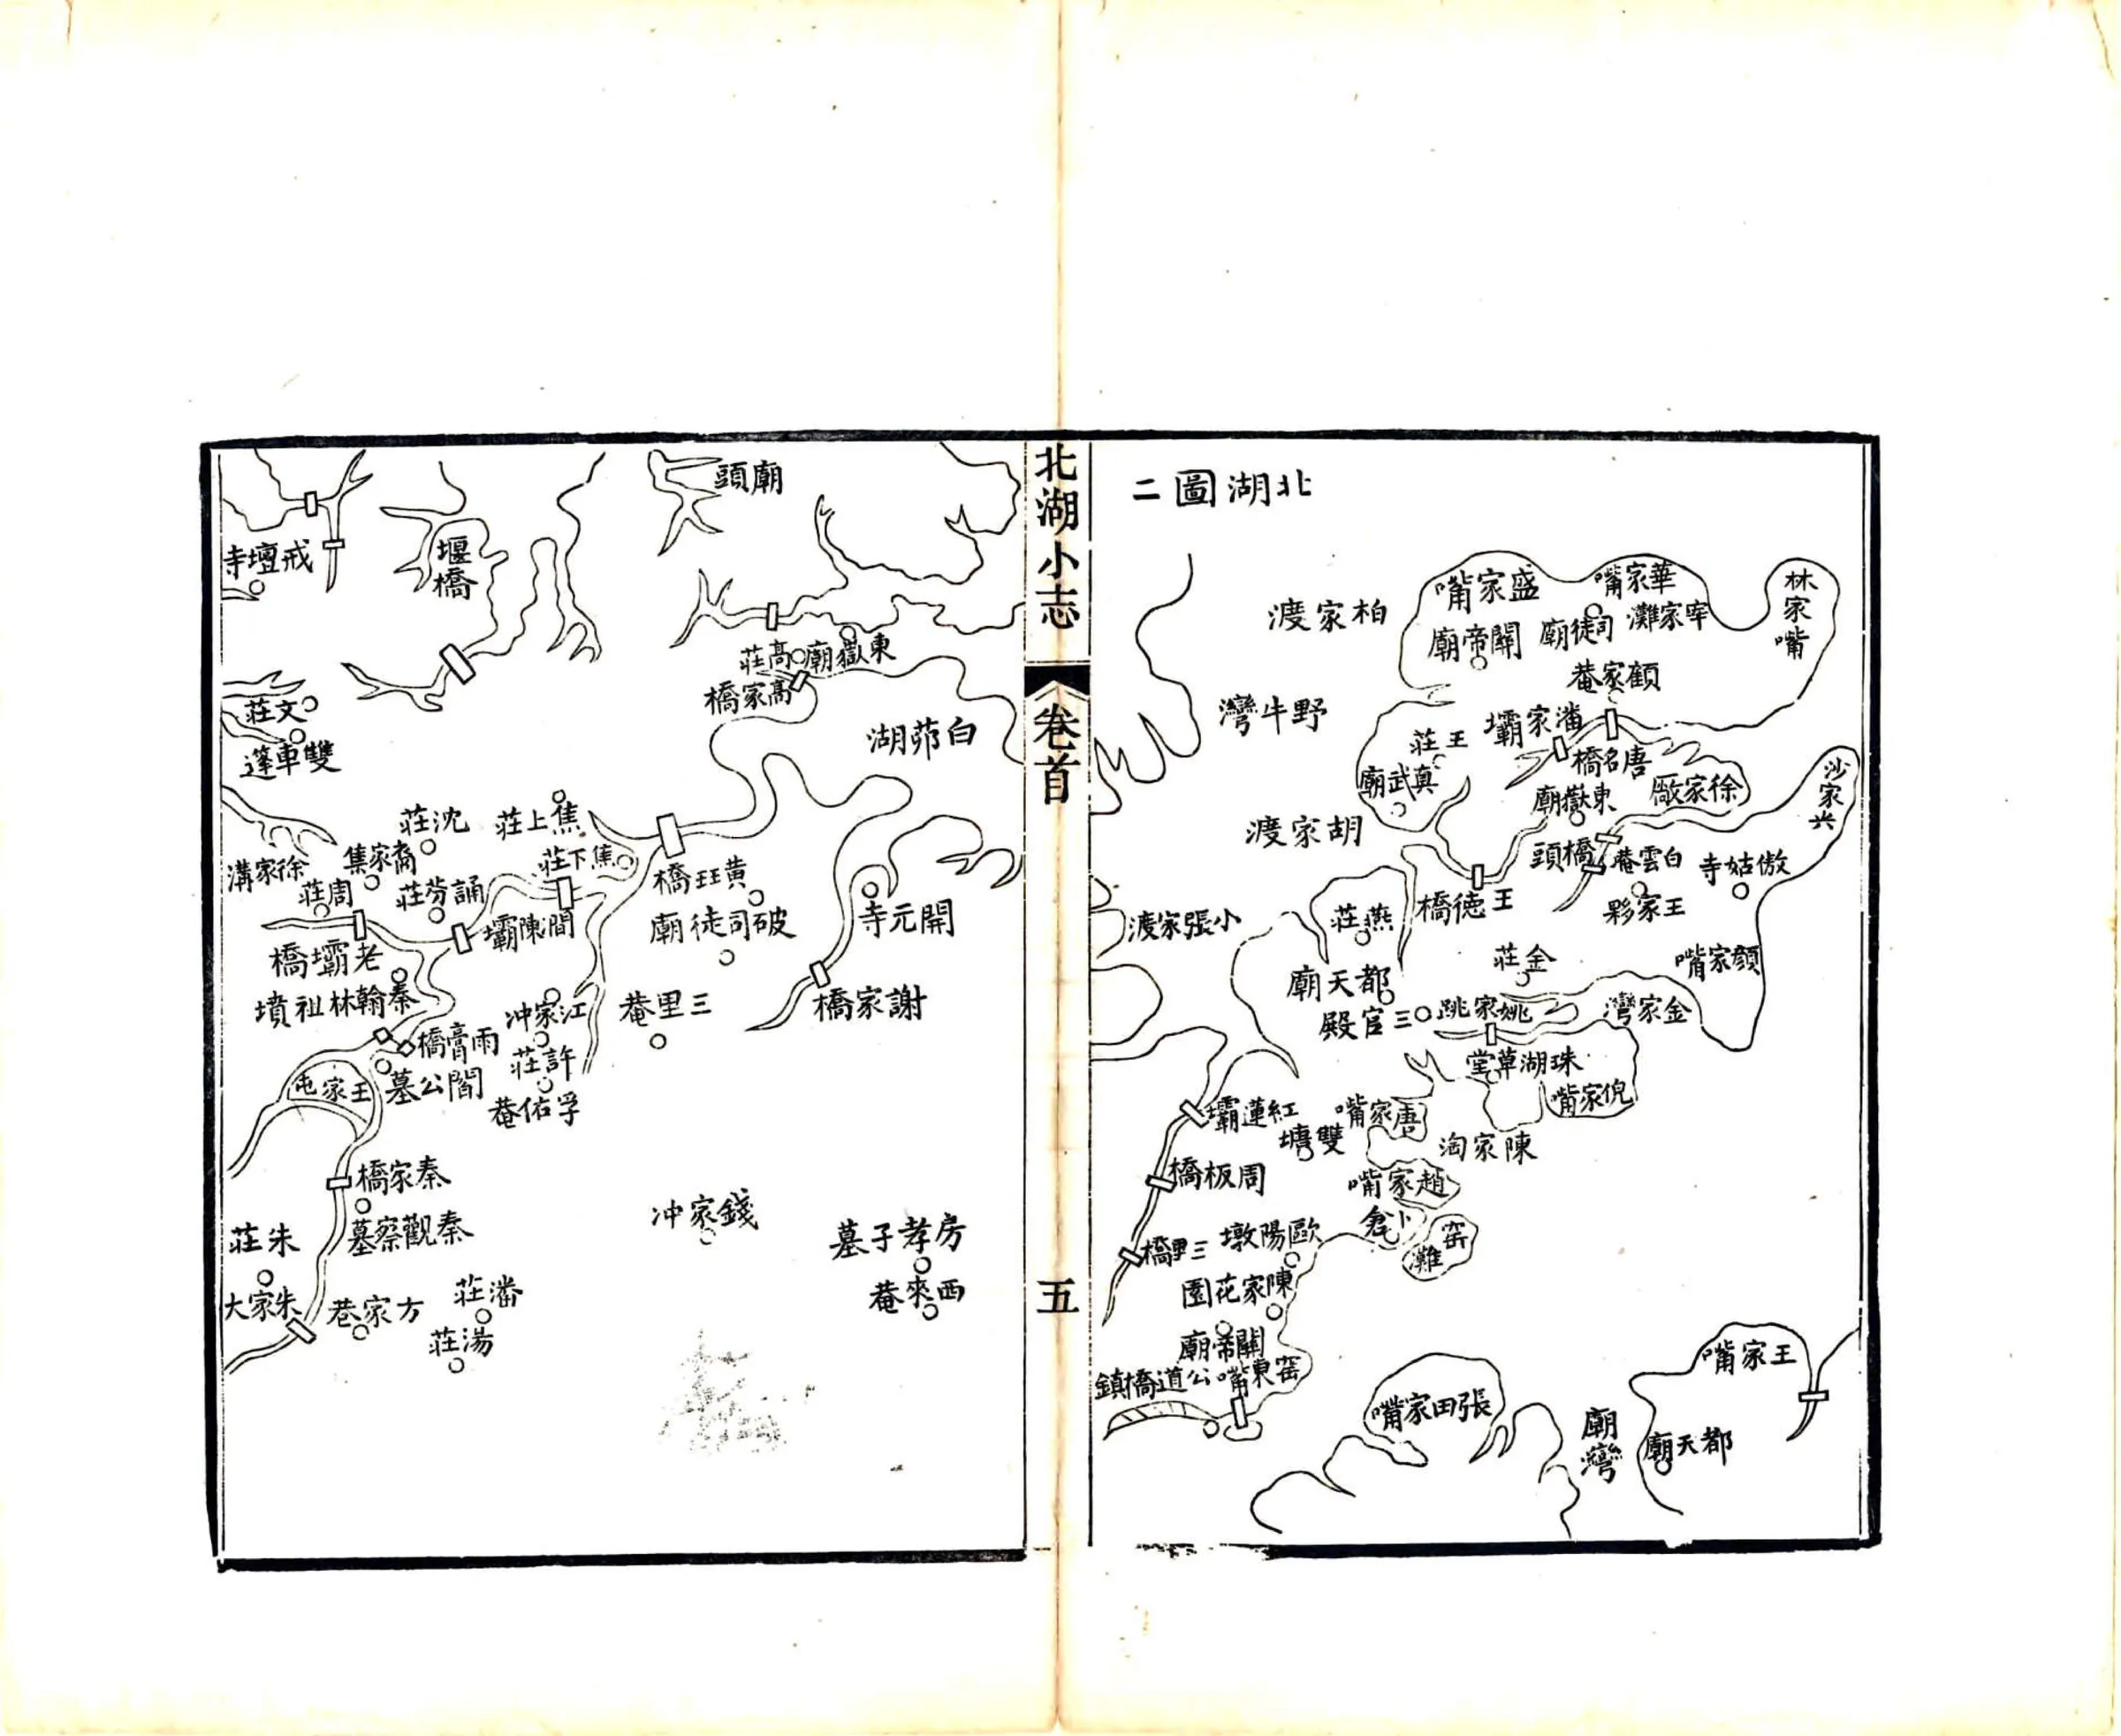 北湖圖二
林家嘴
華家嘴
盛家嘴
柏家渡
司徒廟
關帝廟
顧家菴
野牛灣
潘家壩
王莊
唐名橋
真武廟
徐家廠
東嶽廟
沙家
胡家渡
橋頭
白雲菴
傲姑寺
王德橋
王家夥
燕莊
小張家渡
金莊
顏家嘴
都天廟
三官殿
姚家跳
金家灣
珠湖草堂
倪家嘴
紅蓮壩
唐家嘴
雙墩
陳家淘
周板橋
趙家嘴
三里橋
歐陽墩
窑灘
陳家花園
關帝廟
窑東嘴
公道橋鎮
王家嘴
張田家嘴
廟灣
都天廟
北湖小志
卷首
五
廟頭
戒壇寺
堰橋
東嶽廟
高莊
高家橋
白茆湖
文莊
雙車篷
焦上莊
沈莊
焦下莊
裔家集
徐家溝
周莊
誦芬莊
黃玨橋
間陳壩
破司徒廟
開元寺
老壩橋
秦翰林祖墳
江家冲
三里菴
謝家橋
雨膏橋
許莊
王家屯
閻公墓
孚佑菴
秦家橋
錢家冲
秦觀察墓
房孝子墓
朱莊
西來菴
朱家大
方家巷
潘莊
湯莊